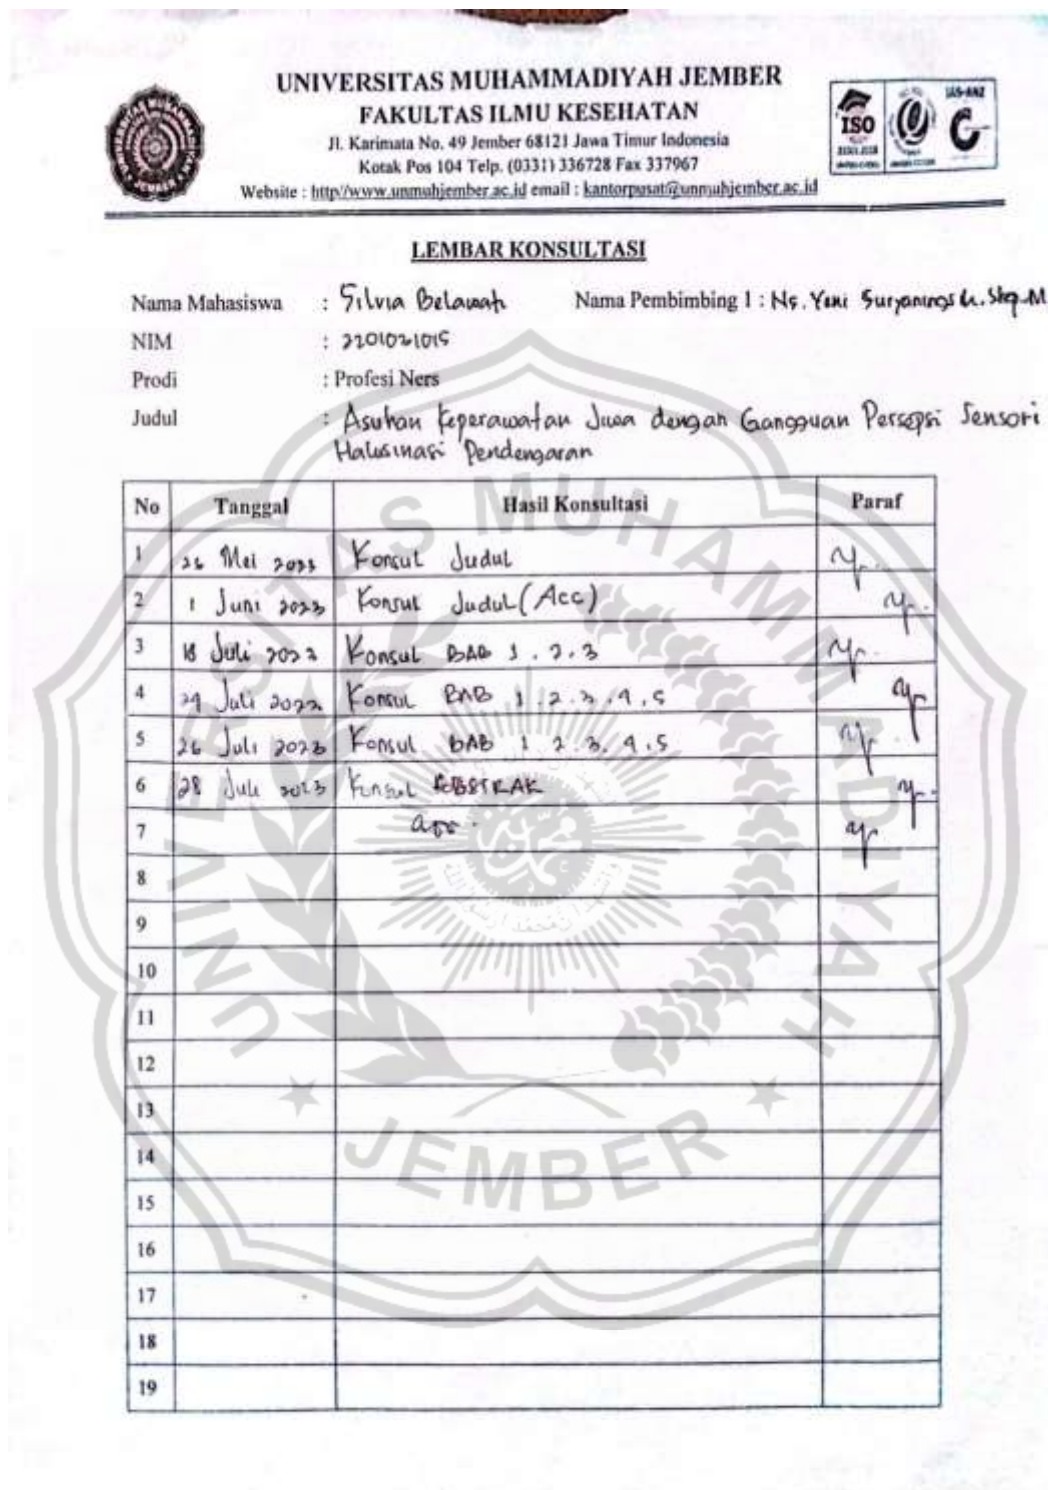 UNIVERSITAS MUHAMMADIYAH JEMBER
FAKULTAS ILMU KESEHATAN
Jl. Karimata No. 49 Jember 68121 Jawa Timur Indonesia
Kotak Pos 104 Telp. (0331) 336728 Fax 337967
Website : http//www.unmuhjember.ac.id email : kantorpusat@unmuhjember.ac.id
ISO
LEMBAR KONSULTASI
Nama Mahasiswa : Silvia Nama Pembimbing 1 : Ns. Yeni
NIM : 2201021015
Prodi : Profesi Ners
Judul : Asuhan Keperawatan Jiwa dengan Gangguan Persepsi Sensori
Halusinasi Pendengaran
No Tanggal Hasil Konsultasi Paraf
1 26 Mei 2023 Konsul Judul
2 1 Juni 2023 Konsul Judul (Acc)
3 18 Juli 2023 Konsul BAB 1.2.3
4 Juli 2023 Konsul BAB 1.2.3.4.5
5 26 Juli 2023 Konsul BAB 1.2.3.4.5
6 28 Juli 2023 Konsul
7 acc.
8
9
10
11
12
13
14
15
16
17
18
19
UNIVERSITAS MUHAMMADIYAH
JEMBER